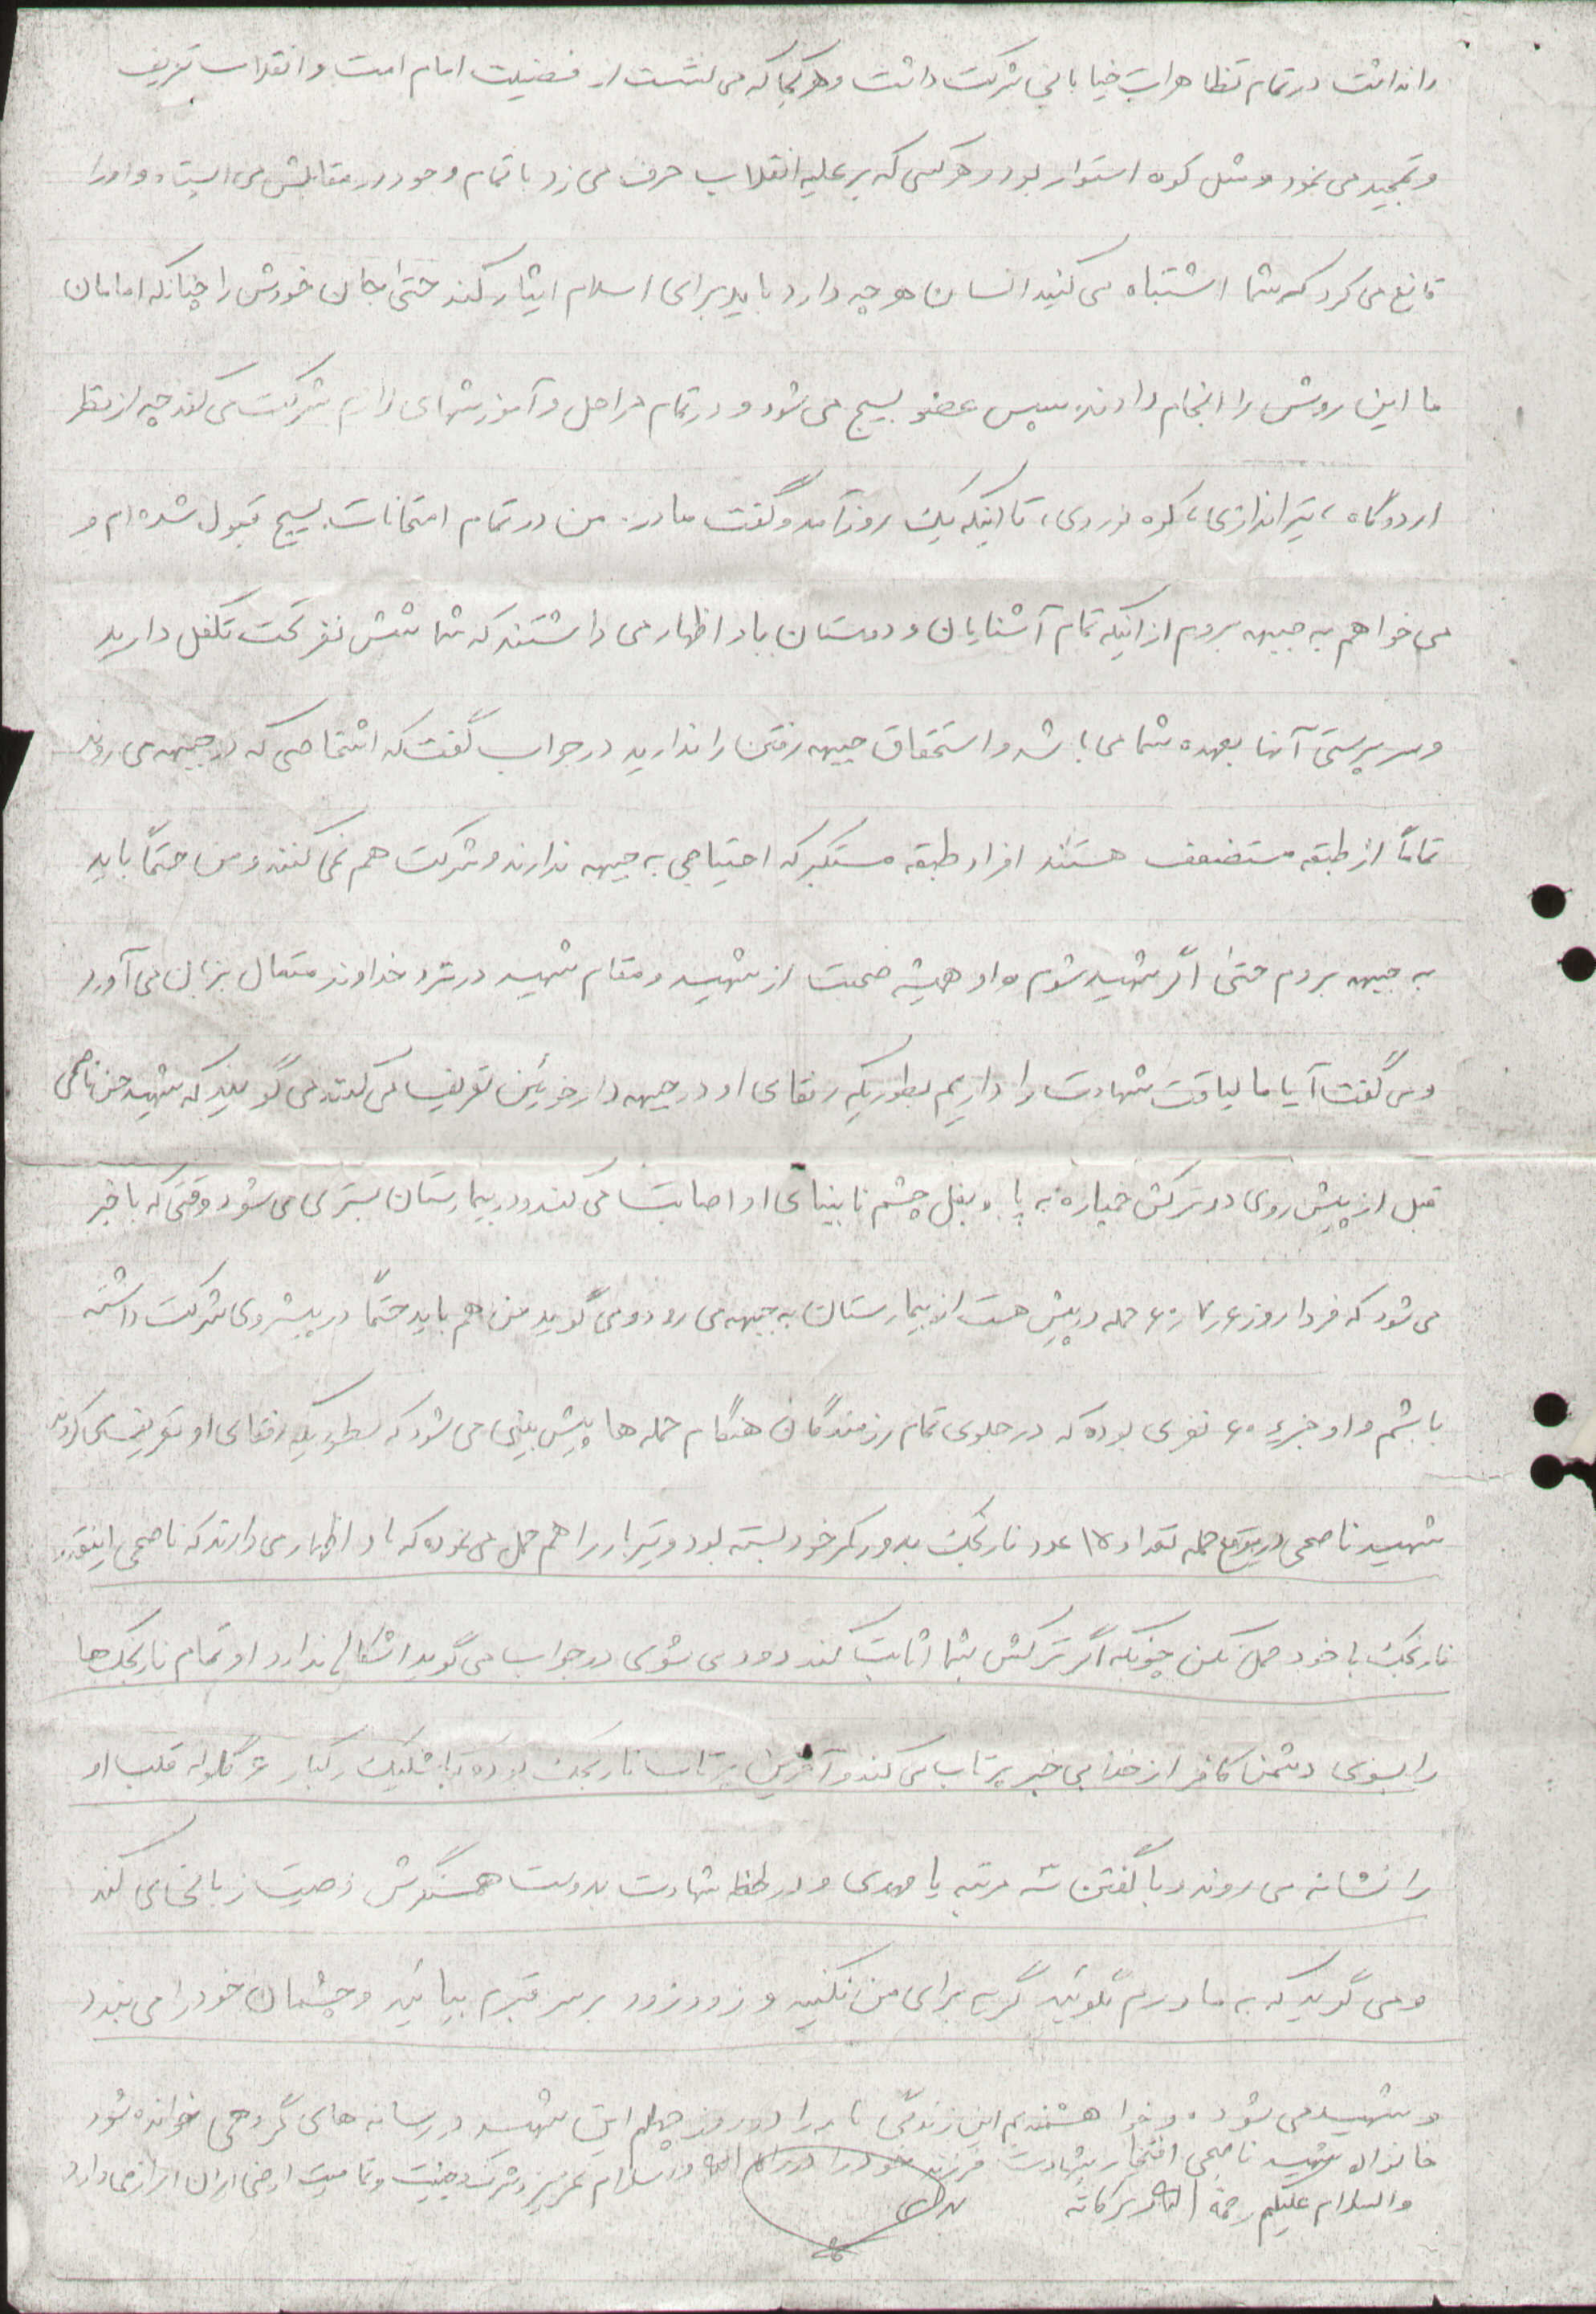 را نداشت در تمام تظاهرات خیابانی شرکت داشت و هر کجا که می نشست از فضیلت امام امت و انقلاب تعریف
و تمجید می نمود و مثل کوه استوار بود و هر کسی که بر علیه انقلاب حرف می زد با تمام وجود در مقابلش می ایستاد و او را
قانع می کرد که شما اشتباه می کنید انسان هر چه دارد باید برای اسلام ایثار کند حتی جان خودش را چنانکه امامان
ما این روش را انجام دادند سپس عضو بسیج می شود و در تمام مراحل و آموزشهای لازم شرکت می کند چه از نظر
اردوگاه ، تیراندازی ، کوه نوردی ، تا اینکه یک روز آمد و گفت مادر من در تمام امتحانات بسیج قبول شده ام و
می خواهم به جبهه بروم از اینکه تمام آشنایان و دوستان باو اظهار می داشتند که شما شش نفر تحت تکفل دارید
و سرپرستی آنها بعهده شما می باشد و استحقاق جبهه رفتن را ندارید در جواب گفت که اشخاصی که در جبهه می روند
تماماً از طبقه مستضعف هستند افراد طبقه مستکبر که احتیاجی به جبهه ندارند و شرکت هم نمی کنند و من حتماً باید
به جبهه بروم حتی اگر شهید شوم و او همیشه صحبت از شهید و مقام شهید در نزد خداوند متعال بزبان می آورد
و می گفت آیا ما لیاقت شهادت را داریم بطوریکه رفقای او در جبهه دارخوئین تعریف می کنند می گویند که شهید حسن ناصحی
قبل از پیش روی دو ترکش خمپاره به پا و بغل چشم نابینای او اصابت می کند و در بیمارستان بستری می شود وقتی که با خبر
می شود که فردا روز ۶۰/۷/۶ حمله در پیش هست از بیمارستان به جبهه می رود و می گوید من هم باید حتماً در پیشروی شرکت داشته
باشم و او جزء ۶۰ نفری بوده که در جلوی تمام رزمندگان هنگام حمله ها پیش بینی می شود که بطوریکه رفقای او تعریف می کردند
شهید ناصحی در موقع حمله تعداد ۱۸ عدد نارنجک بدور کمر خود بسته بود و تیربار را هم حمل می نموده که باو اظهار می دارند که ناصحی اینقدر
نارنجک با خود حمل نکن چونکه اگر ترکش بشما اثابت کند دود می شوی در جواب می گوید اشکالی ندارد او تمام نارنجک ها
را بسوی دشمن کافر از خدا بی خبر پرتاب می کند و آخرین پرتاب نارنجک بوده که با شلیک رگبار ۶ گلوله قلب او
را نشانه می روند و با گفتن سه مرتبه یا مهدی و در لحظه شهادت بدوست همسنگرش وصیت زبانی می کند
و می گوید که به مادرم بگوئید گریه برای من نکنید و زود زود بر سر قبرم بیائید و چشمان خود را می بندد
و شهید می شود . و خواهشمندیم این زندگی نامه را در روز چهلم این شهید در رسانه های گروهی خوانده شود
خانواده شهید ناصحی افتخار شهادت فرزند خود را در راه الله و اسلام عزیز و شرکت در جنگ و تمامیت ارضی ایران ابراز می دارد
والسلام علیکم رحمة الله و برکاته